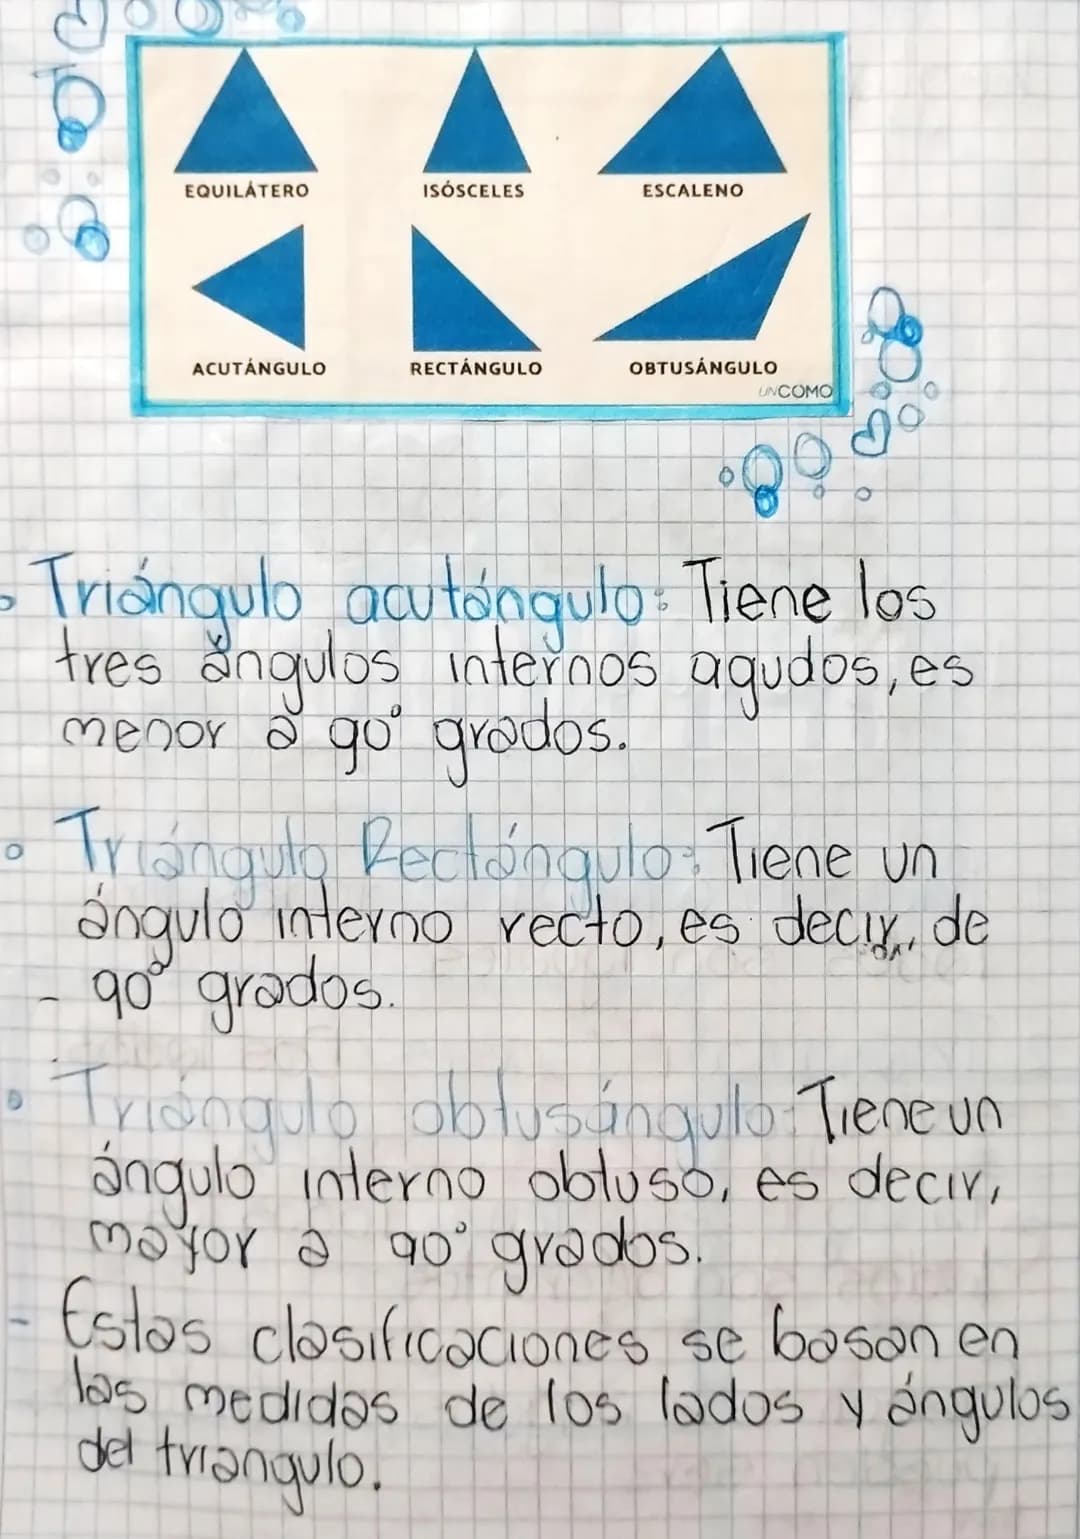 EQUILÁTERO ISÓSCELES ESCALENO
ACUTÁNGULO RECTÁNGULO OBTUSÁNGULO
UNCOMO
Triángulo acutángulo: Tiene los
tres ángulos internos agudos, es
menor a 90° grados.
Triángulo Rectángulo: Tiene un
ángulo interno recto, es decir, de
90° grados.
Triángulo obtusángulo: Tiene un
ángulo interno obtuso, es decir,
mayor a 90° grados.
- Estas clasificaciones se basan en
las medidas de los lados y ángulos
del triangulo.